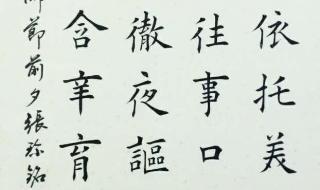 依托美
往事口
徹夜謳
含辛育
師節前夕張銘